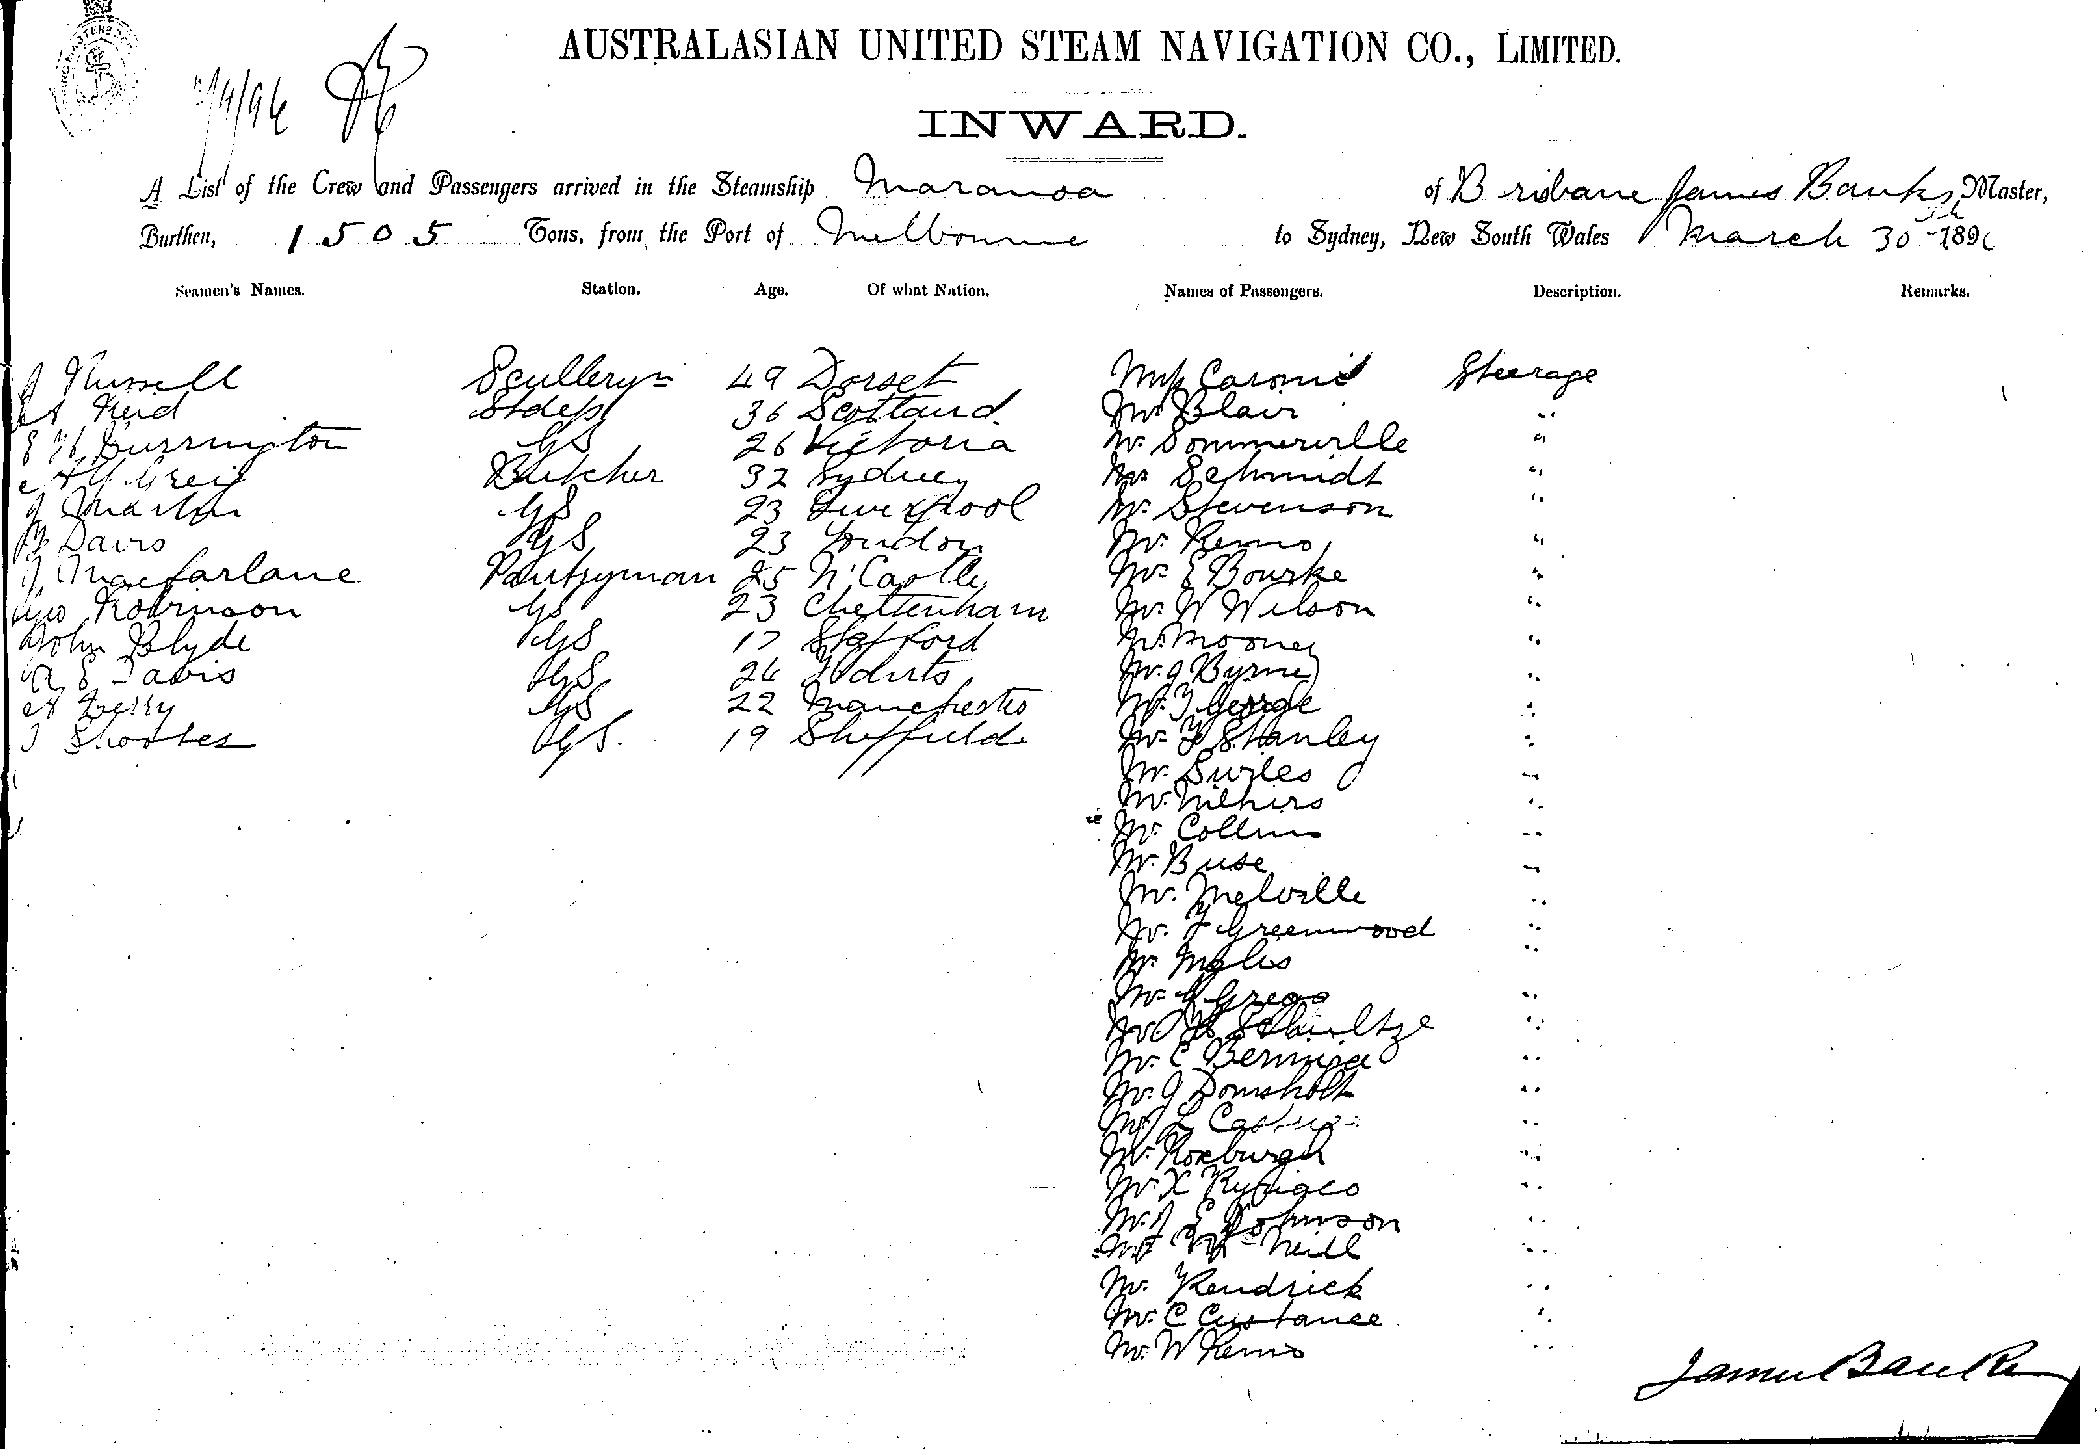 AUSTRALASIAN UNITED STEAM NAVIGATION CO., LIMITED.
INWARD.
A List of the Crew and Passengers arrived in the Steamship Maranoa of Brisbane James Banks, Master,
Burthen, 1505 Tons, from the Port of Melbourne to Sydney, New South Wales March 30th 1896
Seamen's Names. Station. Age. Of what Nation. Names of Passengers. Description. Remarks.
J Russell Scullery 49 Dorset Caronie Steerage
Reid Stdess 36 Scotland Mr Blair "
Durrington GS 26 Victoria Mr Sommerville "
Greig Butcher 32 Sydney Mr Schmidt "
J Martin GS 23 Liverpool Mr Stevenson "
Davis GS 23 London Mr Remo "
J Macfarlane Pantryman 25 N'Castle Mr E Bourke "
Geo Robinson GS 23 Cheltenham Mr W Wilson "
John Blyde GS 17 Stafford Mr Mooney "
E Davis GS 26 Mr J Byrne "
GS 22 Manchester Mr J George "
J Shooter GS. 19 Sheffield Mr F Stanley "
Mr. Swiles "
Mr. "
Mr Collins "
Mr. Buse "
Mr. Melville "
Mr. J Greenwood "
Mr Inglis "
Mr G Gregg "
Mr H Schultze "
Mr. C "
Mr. J Domsholt "
L "
Mr. Roxburgh "
Mr X "
Mr J E Johnson "
Neill "
Mr. Kendrick "
Mr. C Custance "
Mr. W Remo "
James Banks